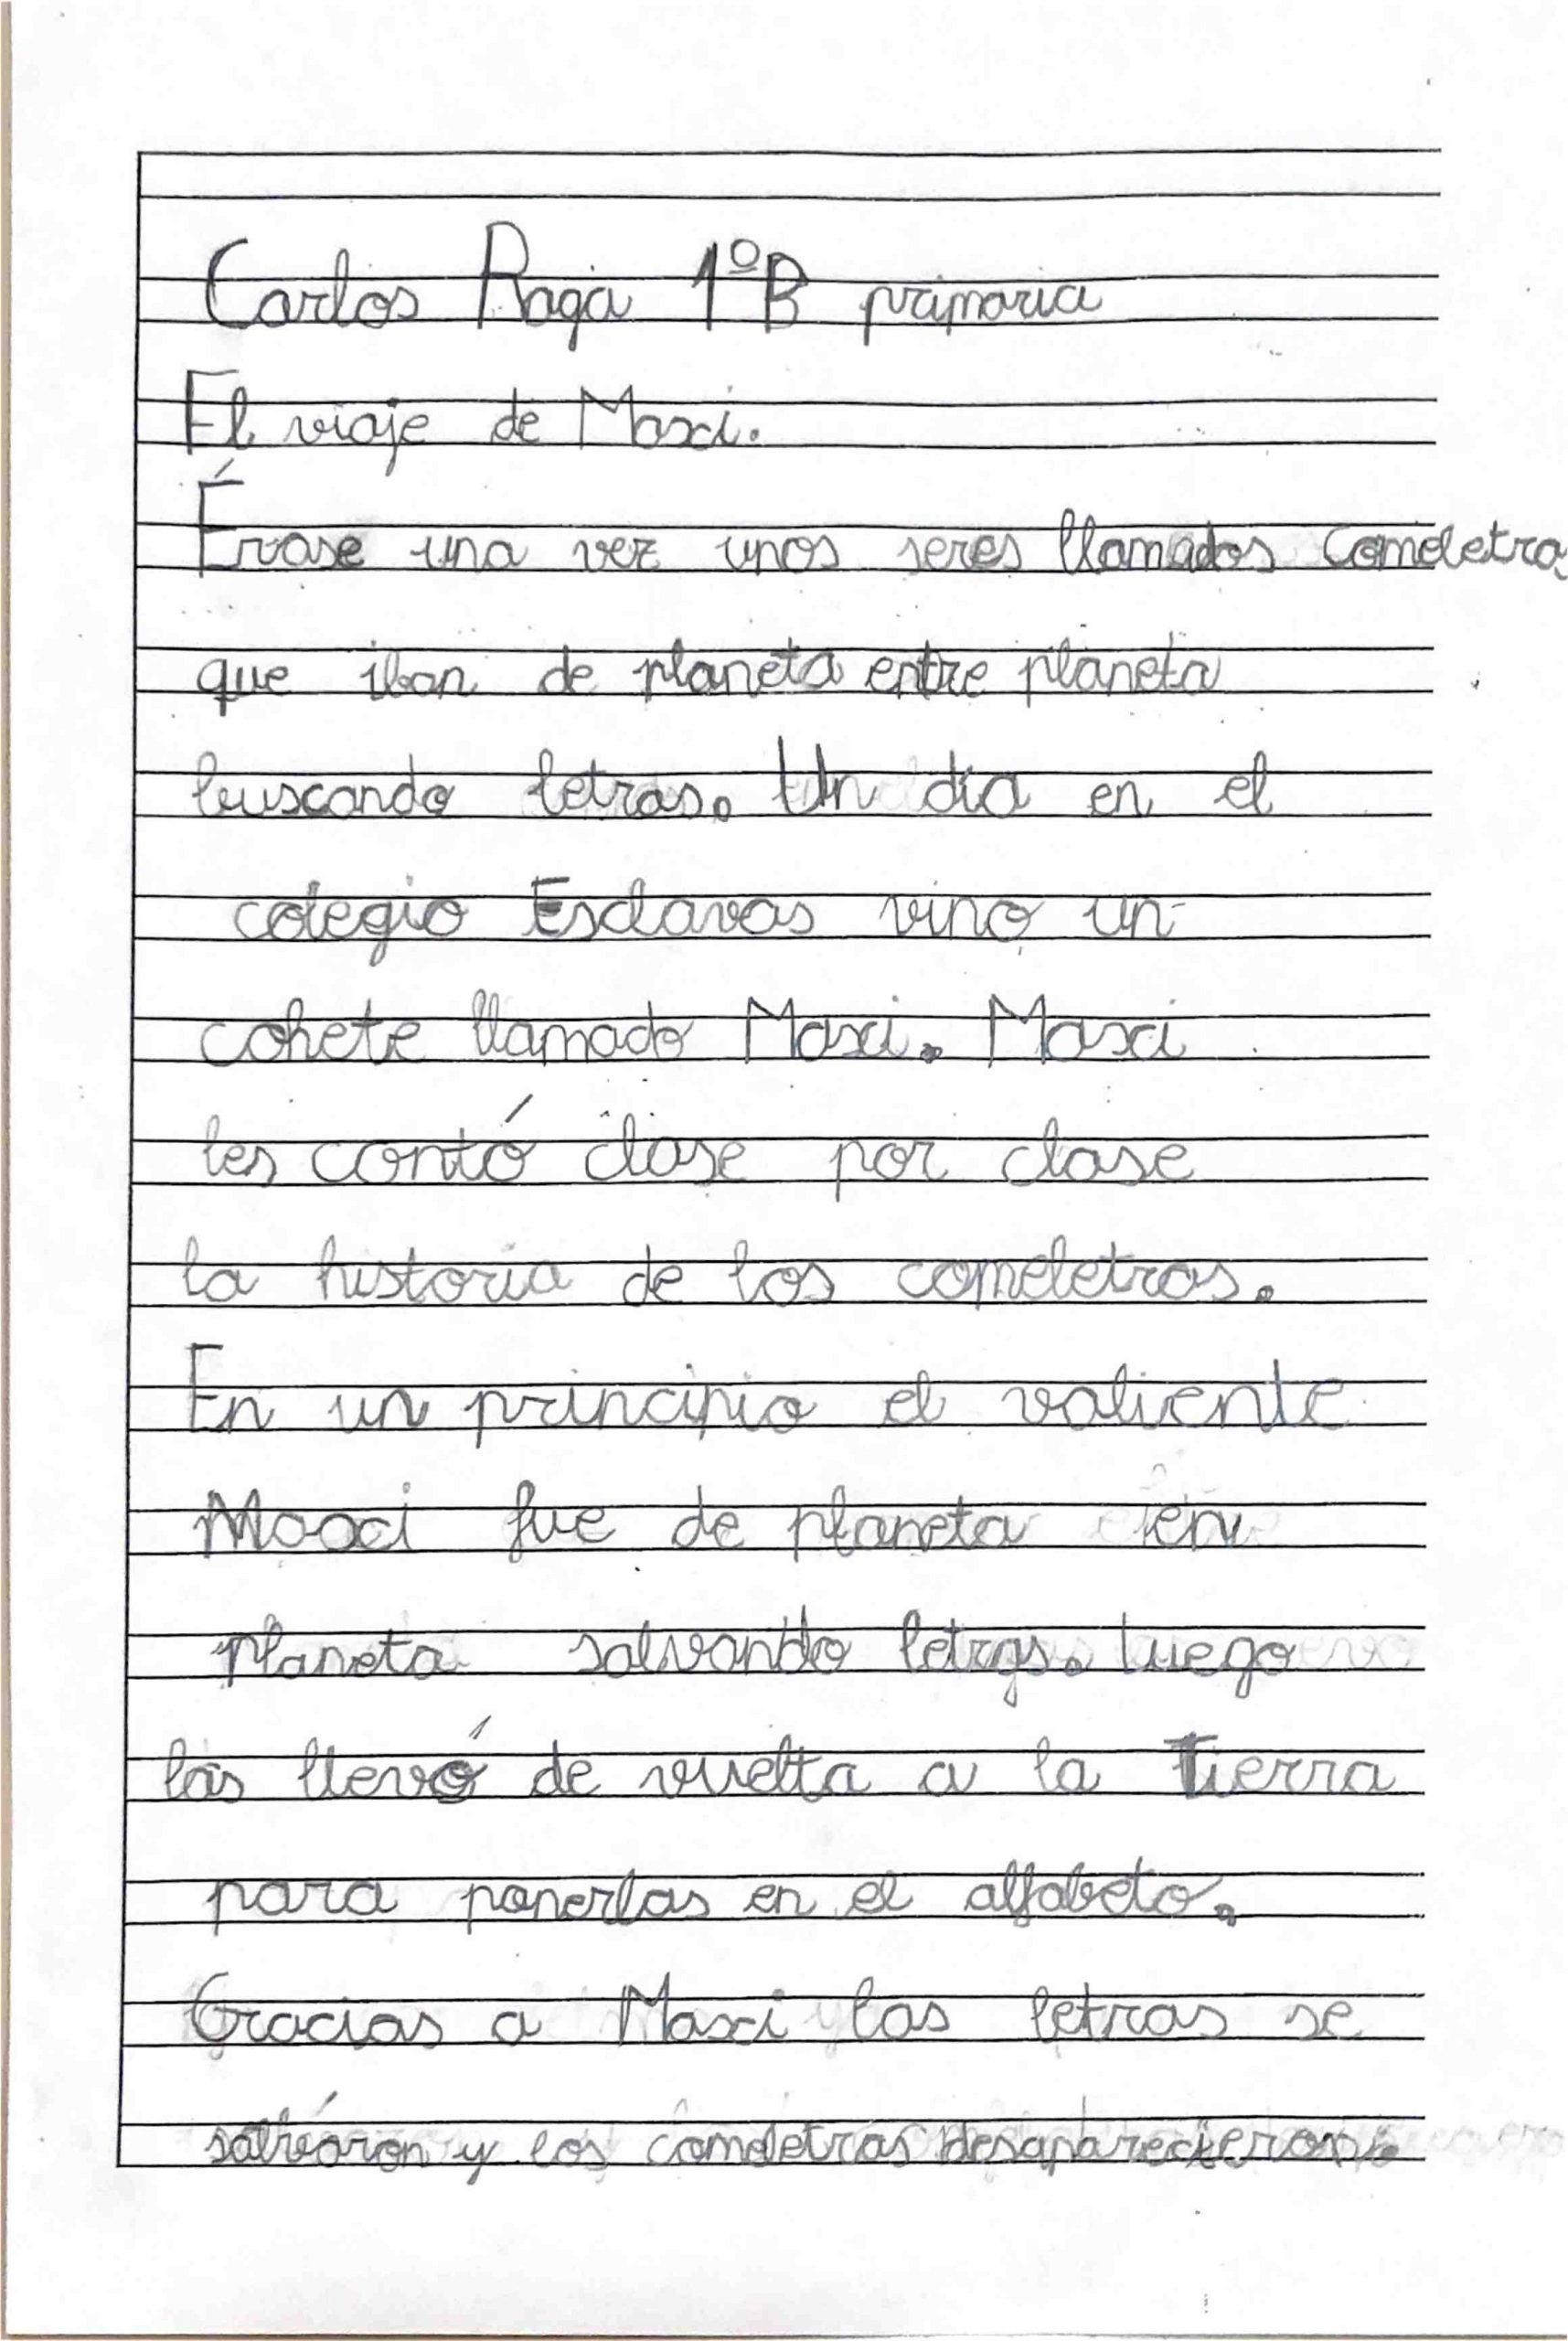 Carlos Raga 1ºB primaria
El viaje de Maxi.
Érase una vez unos seres llamados Comeletras
que iban de planeta entre planeta
buscando letras. Un día en el
colegio Esclavas vino un
cohete llamado Maxi. Maxi
les contó clase por clase
la historia de los comeletras.
En un principio el valiente
Maxi fue de planeta en
planeta salvando letras. Luego
las llevó de vuelta a la Tierra
para ponerlas en el alfabeto.
Gracias a Maxi las letras se
salvaron y los comeletras desaparecieron.